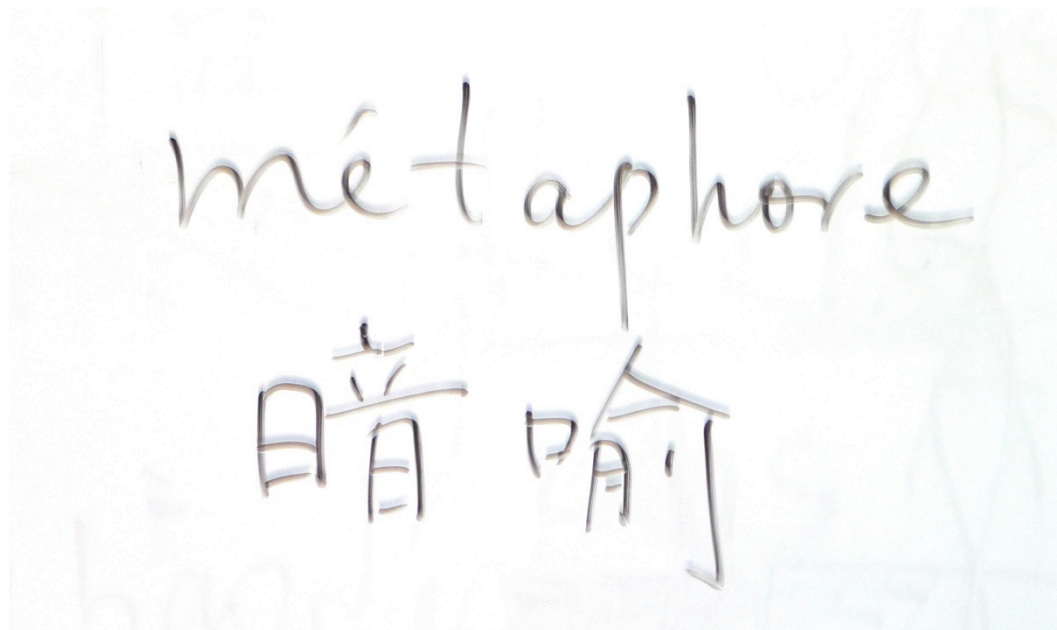 métaphore
暗喻